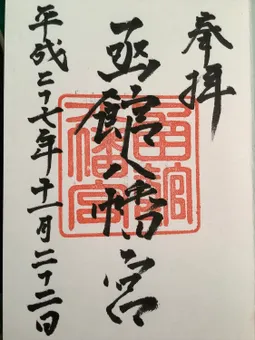 奉拝
函館八幡宮
平成二十七年十一月二十二日